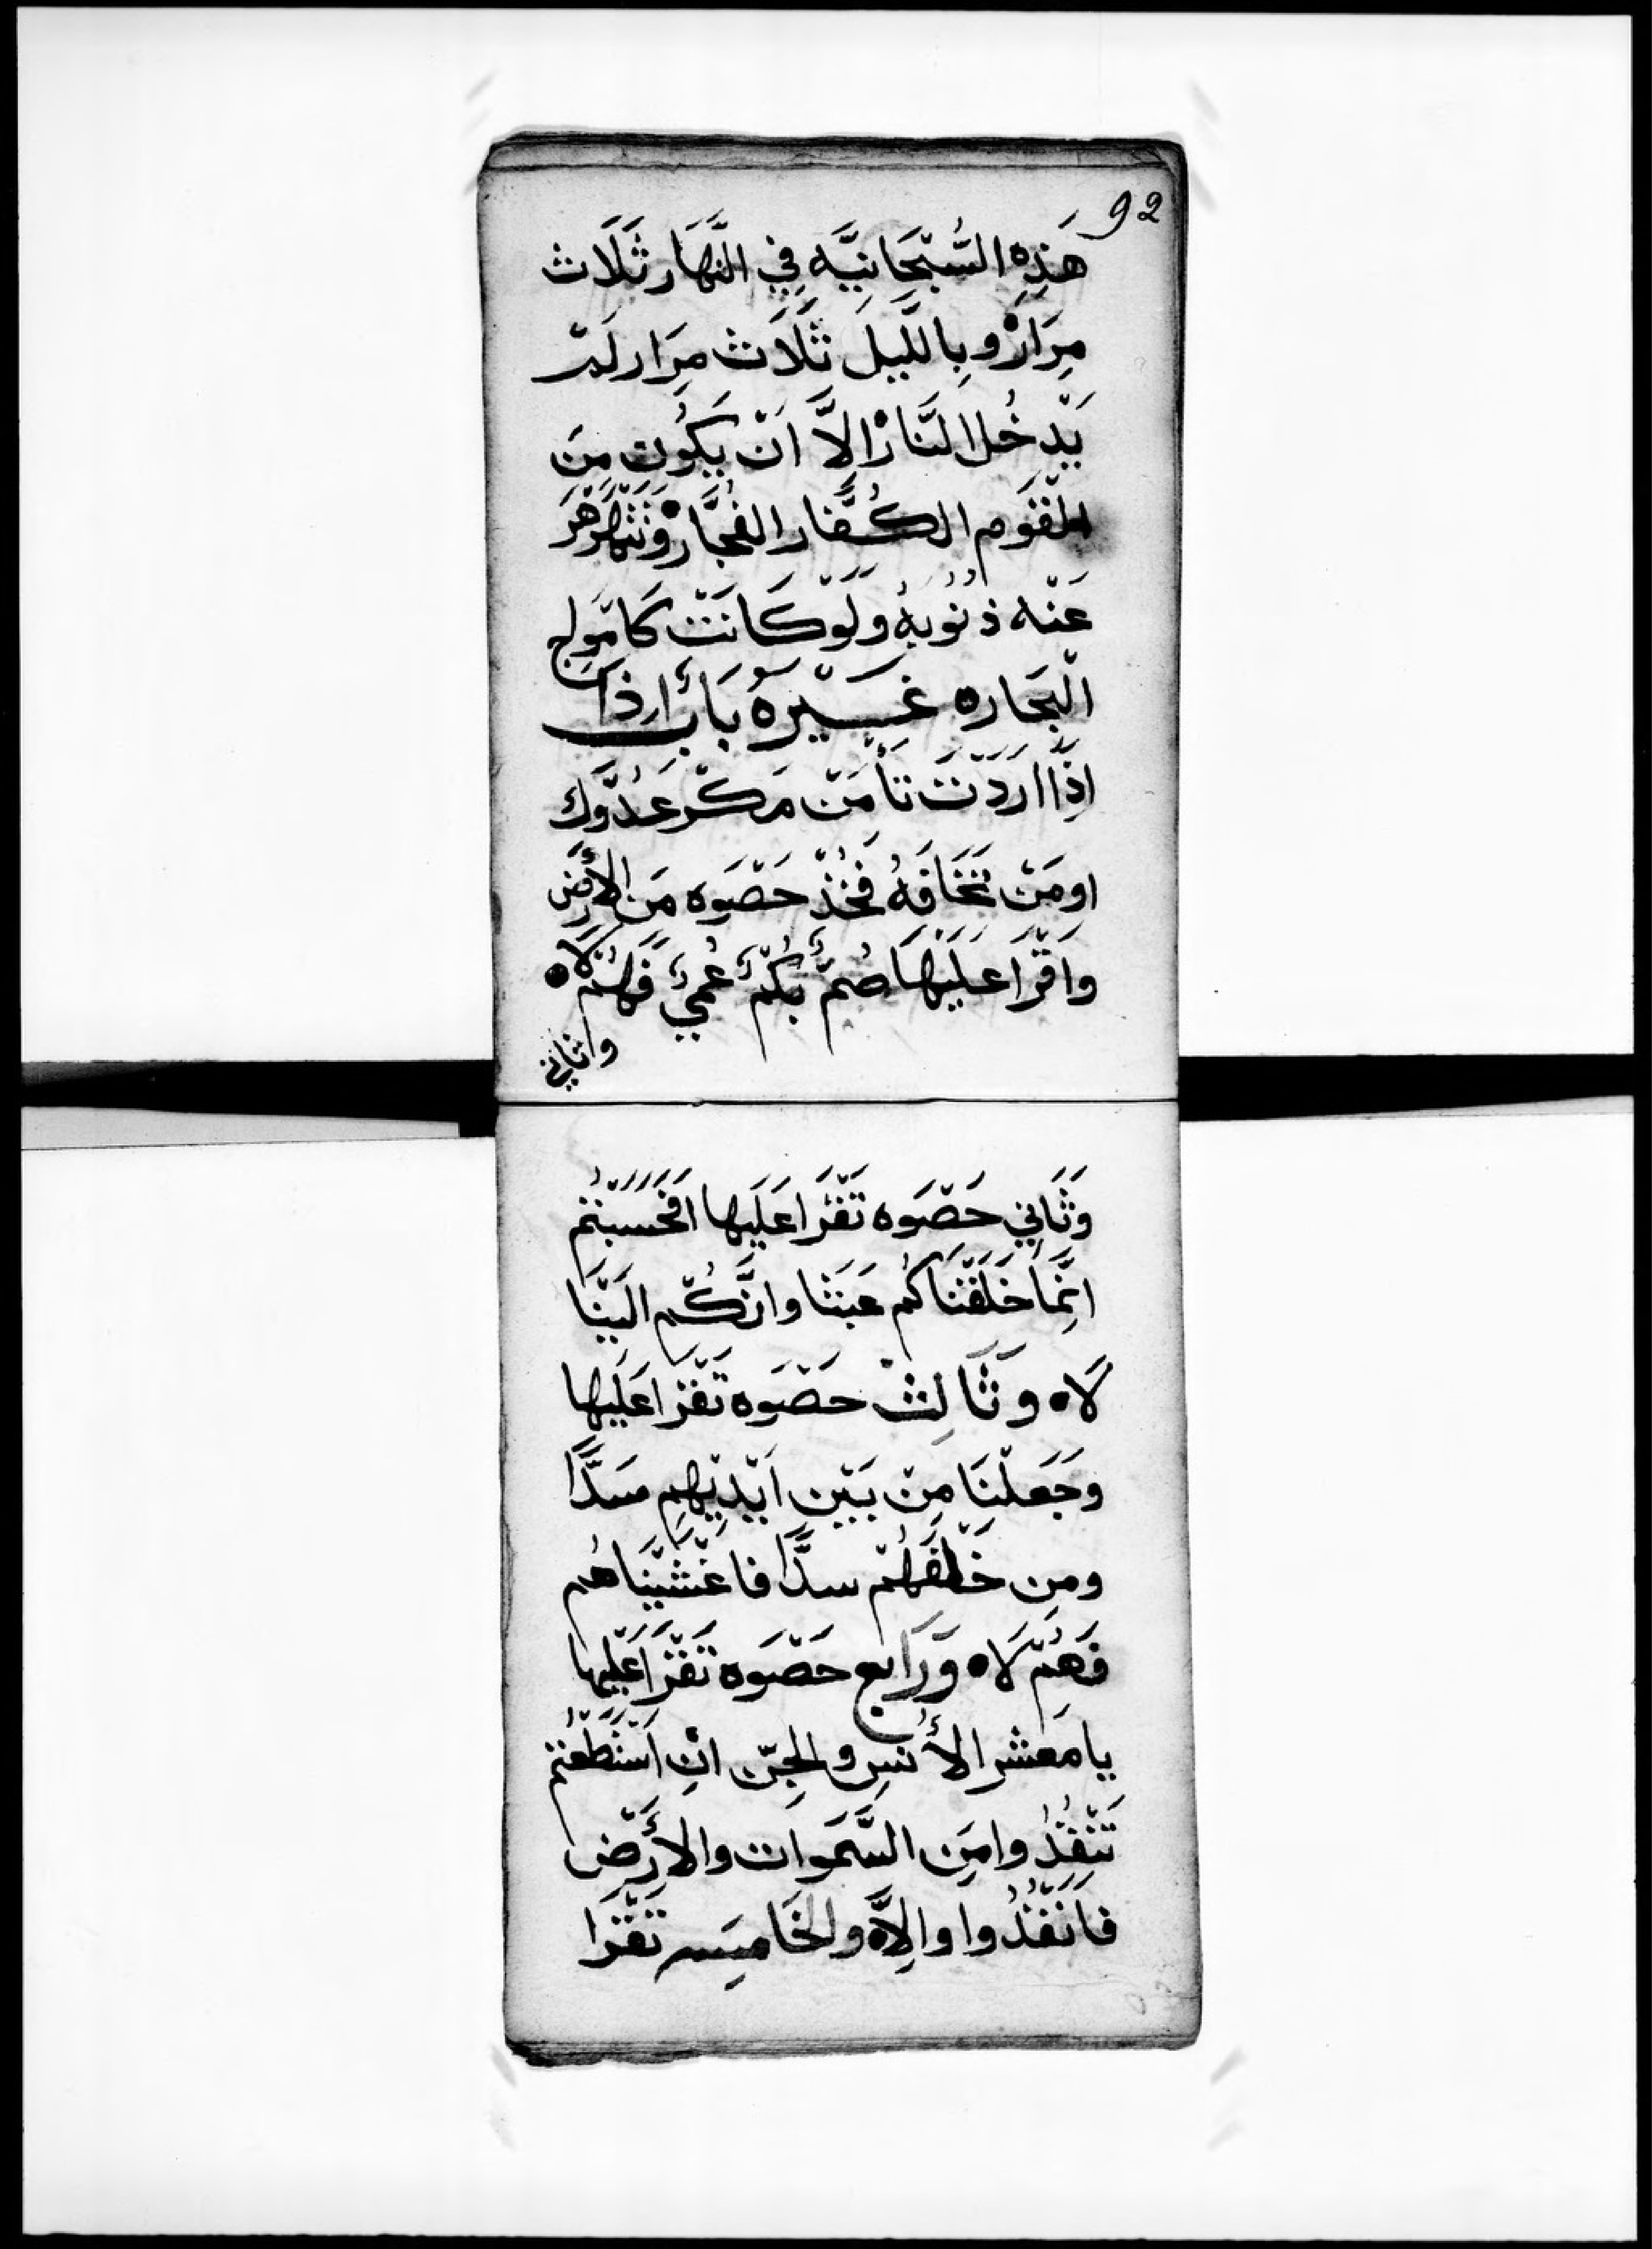 92
هَذِهِ السُّبْحَانِيَّه فِي النَّهَار ثَلَاث
مِرَارْ وبِاللَّيلَ ثَلَاث مِرَار لَمْ
يَدْخُل النَّارْ اِلاَّ اَنْ يَكُون مِنَ
الْقَوم الكُفَّار الفُجَّارْ
عَنْه ذنُوبهُ ولَوْ كَانَتْ كَامْوَاج
الْبَحَاره غَيْرهُ بَابٌ اِذَا
اِذَا اَرَدْتَ تَأمَنْ مَكْر عَدُوَّك
او مَنْ تَخَافَهُ فَخُذْ حَصْوَه مَن الأَرْض
وَاقْرَا عَلَيْهَا صُمٌّ بُكْمٌ عُميٌ فَهُمْ لَاه
وثاني
وَثَانِي حَصْوَه تَقْرَا عَلَيها اَفَحَسَبْتُم
اِنَّمَا خَلَقْنَاكُم عَبَثَا وانَّكُمْ اِلَيْنَا
لَاه وَثَالِثْ حَصْوَه تَقْرَا عَلَيها
وجَعَلْنَا مِنْ بَيْن اَيْدِيْهِم سَدًّا
ومِن خَلْفَهُمْ سدًّا فاغْشَيْنَاهُم
فَهُمْ لَاه وَرَابع حَصْوَه تَقْرَا عَلَيها
يا مَعشر الأنس والجِنّ اِنِ اَسْتَطَعْتُم
تَنْفِذُوا مِنَ السَّمَوات والأَرْض
فَانْفُذُوا والِاَّه والخَامِسه تَقْرَا